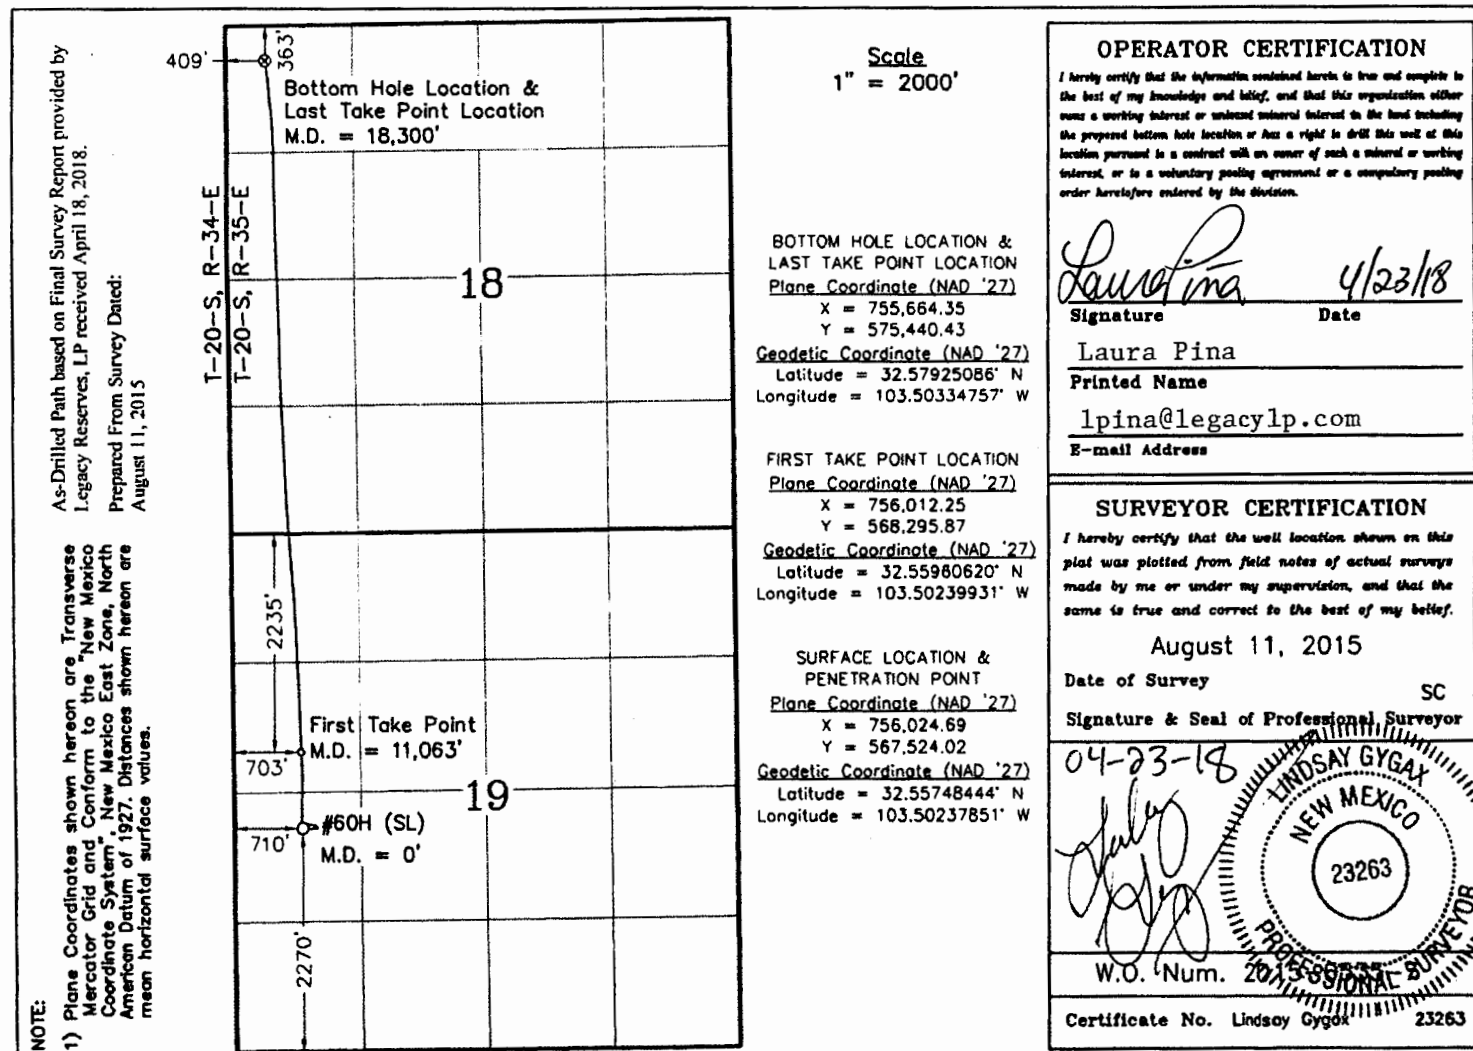 NOTE:
1) Plane Coordinates shown hereon are Transverse
Mercator Grid and Conform to the "New Mexico
Coordinate System", New Mexico East Zone, North
American Datum of 1927. Distances shown hereon are
mean horizontal surface values.
As-Drilled Path based on Final Survey Report provided by
Legacy Reserves, LP received April 18, 2018.
Prepared From Survey Dated:
August 11, 2015
409'
363'
Bottom Hole Location &
Last Take Point Location
M.D. = 18,300'
T-20-S, R-34-E
T-20-S, R-35-E
18
2235'
First Take Point
M.D. = 11,063'
703'
19
#60H (SL)
710'
M.D. = 0'
2270'
Scale
1" = 2000'
BOTTOM HOLE LOCATION &
LAST TAKE POINT LOCATION
Plane Coordinate (NAD '27)
X = 755,664.35
Y = 575,440.43
Geodetic Coordinate (NAD '27)
Latitude = 32.57925086° N
Longitude = 103.50334757° W
FIRST TAKE POINT LOCATION
Plane Coordinate (NAD '27)
X = 756,012.25
Y = 568,295.87
Geodetic Coordinate (NAD '27)
Latitude = 32.55960620° N
Longitude = 103.50239931° W
SURFACE LOCATION &
PENETRATION POINT
Plane Coordinate (NAD '27)
X = 756,024.69
Y = 567,524.02
Geodetic Coordinate (NAD '27)
Latitude = 32.55748444° N
Longitude = 103.50237851° W
OPERATOR CERTIFICATION
I hereby certify that the information contained herein is true and complete to
the best of my knowledge and belief, and that this organization either
owns a working interest or unleased mineral interest in the land including
the proposed bottom hole location or has a right to drill this well at this
location pursuant to a contract with an owner of such a mineral or working
interest, or to a voluntary pooling agreement or a compulsory pooling
order heretofore entered by the division.
Laura Pina 4/23/18
Signature Date
Laura Pina
Printed Name
lpina@legacylp.com
E-mail Address
SURVEYOR CERTIFICATION
I hereby certify that the well location shown on this
plat was plotted from field notes of actual surveys
made by me or under my supervision, and that the
same is true and correct to the best of my belief.
August 11, 2015
Date of Survey
SC
Signature & Seal of Professional Surveyor
04-23-18
LINDSAY GYGAX
NEW MEXICO
23263
PROFESSIONAL SURVEYOR
W.O. Num.
Certificate No. Lindsay Gygax 23263